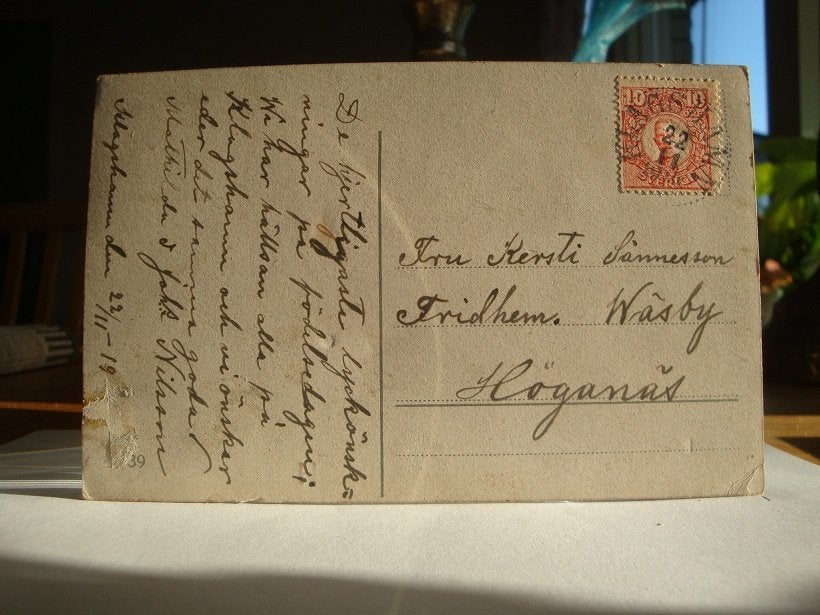 De hjertligaste lyckönsk=
ningar på födelsedagen;
Wi har hälsan alla på
Klagshamn och vi önskar
eder det samma goda
Mathilda & Nilsson
Klagshamn den 22/11-19
39
10 10
SVERIGE
KLAGSHAMN
22
11
Fru Kersti Sånnesson
Fridhem. Wäsby
Höganäs